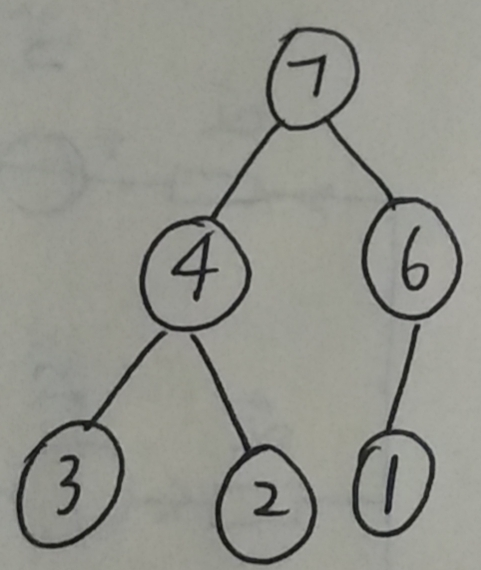 7
4 6
3 2 1